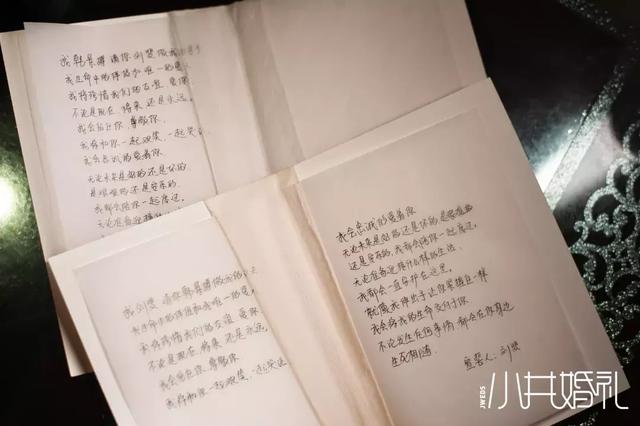 我韩景琳请你刘赟做我
我生命中的伴侣和唯一的爱人
我将珍惜我们的友谊,爱你
不论是现在,将来,还是永远。
我会信任你,尊敬你
我将和你一起欢笑,一起哭泣
我会忠诚的爱着你
无论未来是好的还是坏的
是艰难的还是安乐的
我都会陪你一起度过。
无论准备迎接什么
我刘赟,请你韩景琳做我的
我生命中的伴侣和我唯一的爱人
我将珍惜我们的友谊,爱你
不论是现在,将来,还是永远。
我会信任你,尊敬你
我将和你一起欢笑,一起哭泣
我会忠诚的爱着你
无论未来是好的还是坏的是艰难的
还是安乐的,我都会陪你一起度过。
无论准备迎接什么样的生活
我都会一直守护在这里。
就像我伸出手让你紧握住一样
我会将我的生命交付于你
不论发生任何事情,都会在你身边
生死相随。
宣誓人:刘赟
JWEDS
小井婚礼